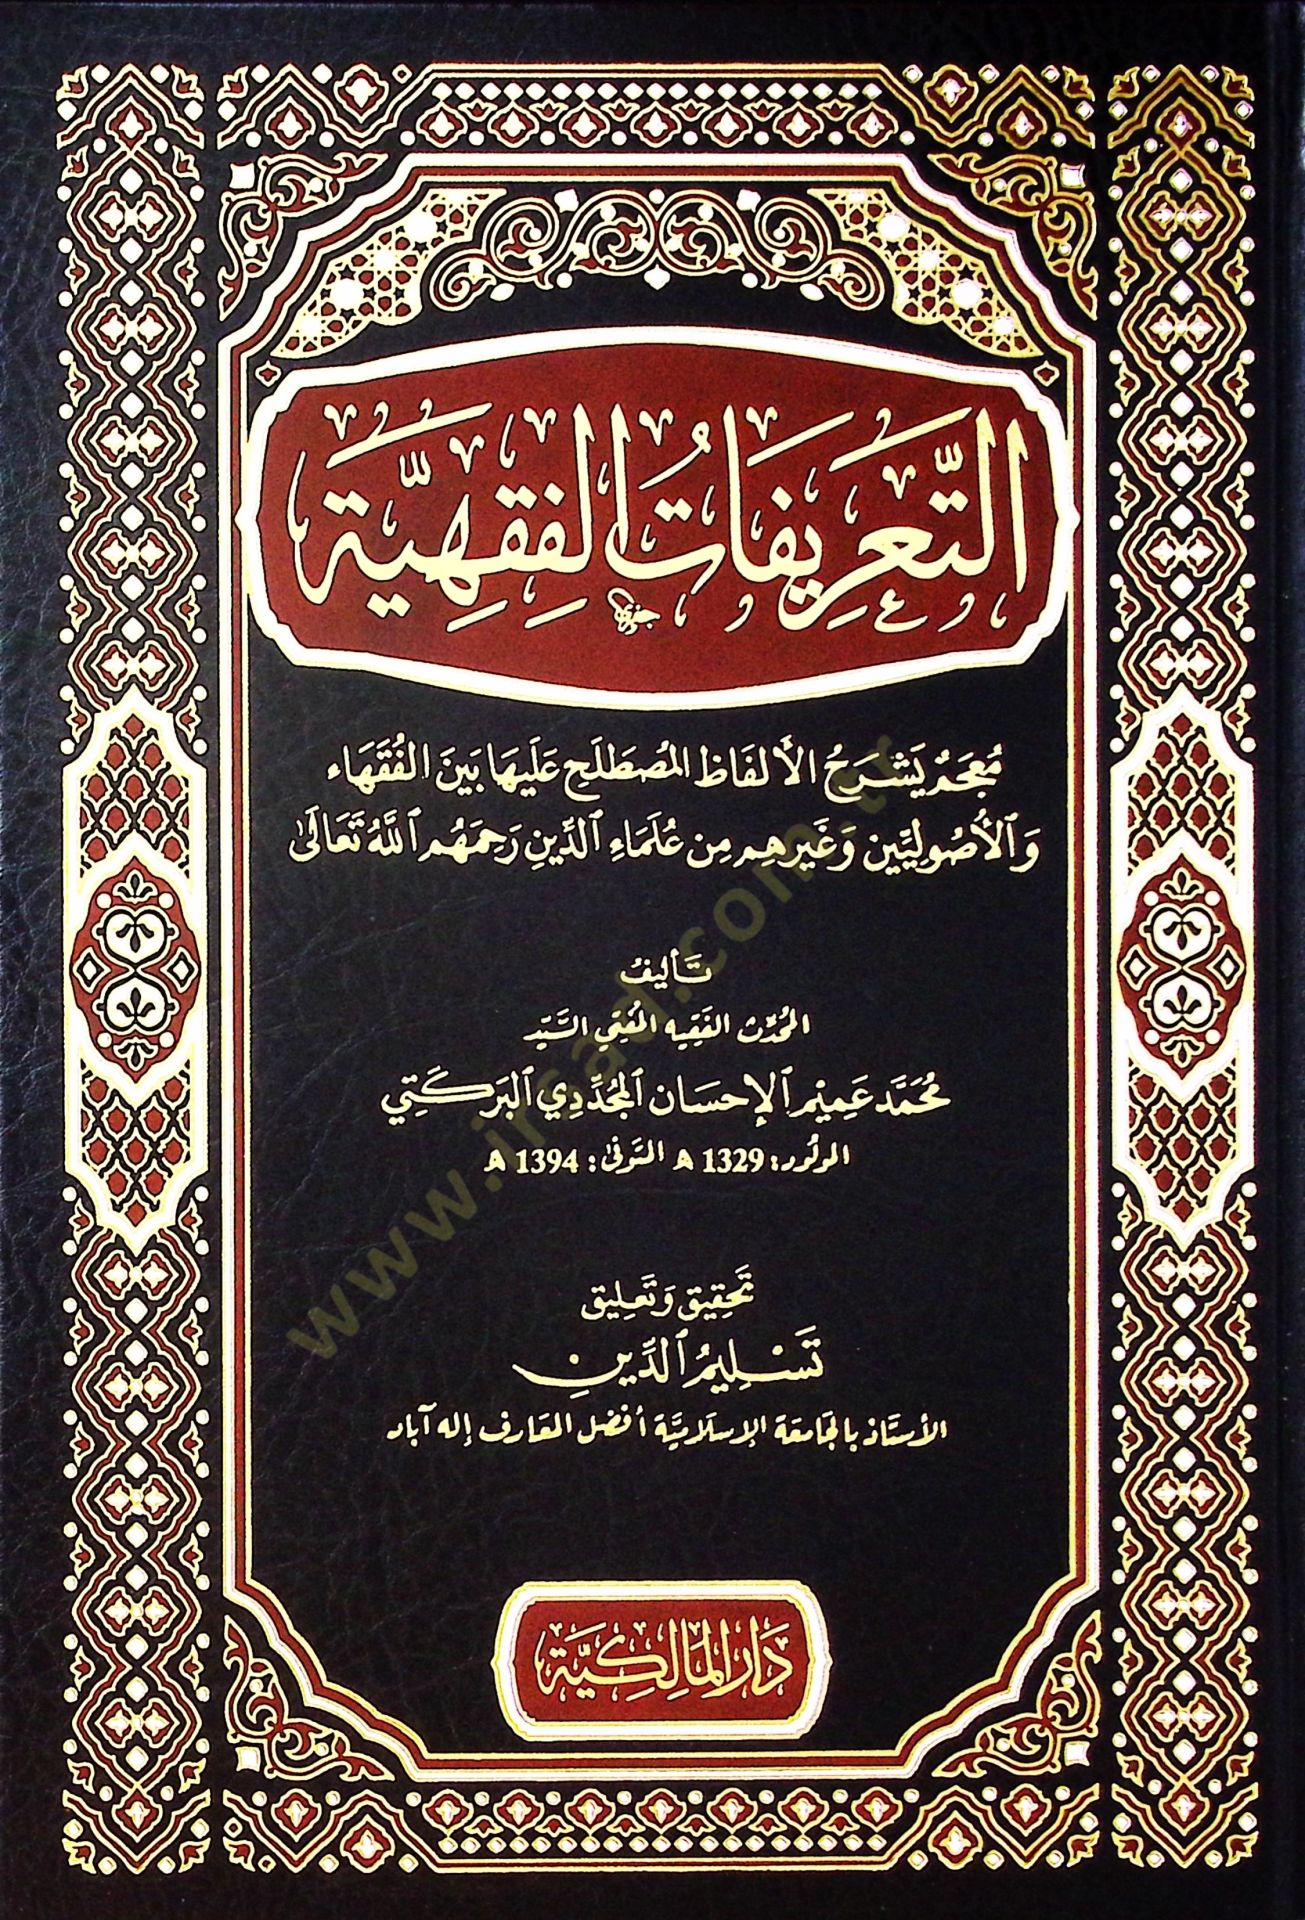 التَّعْرِيفَاتُ الْفِقْهِيَّة
مُعْجَمٌ يَشْرَحُ الأَلْفَاظَ المُصْطَلَحَ عَلَيْهَا بَيْنَ الفُقَهَاءِ
وَالأُصُولِيِّينَ وَغَيْرِهِمْ مِنْ عُلَمَاءِ الدِّينِ رَحِمَهُمُ اللهُ تَعَالَى
تَأْلِيفُ
المُحَدِّث الفَقِيه المُفْتِي السَّيِّد
مُحَمَّد عَمِيْم الإِحسَان المُجَدِّدِي البَرَكَتِي
المولود: 1329 هـ المتوفى: 1394 هـ
تَحْقِيق وَتَعْلِيق
تَسْلِيمُ الدِّينِ
الأُستَاذ بِالجَامِعَة الإِسلَامِيَّة أَفضَل المَعَارِف إله آباد
دَارُ المَالِكِيَّة
www.irsad.com.tr